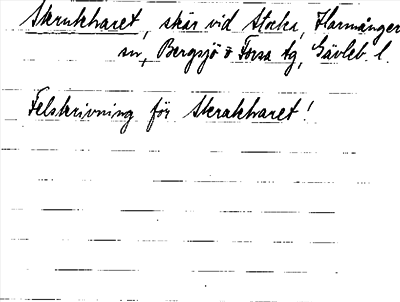 Skrukharet, skär vid Stocka, Harmånger
sn, Bergsjö o Forsa tg, Gävleb. l.
Felskrivning för Skrakharet!